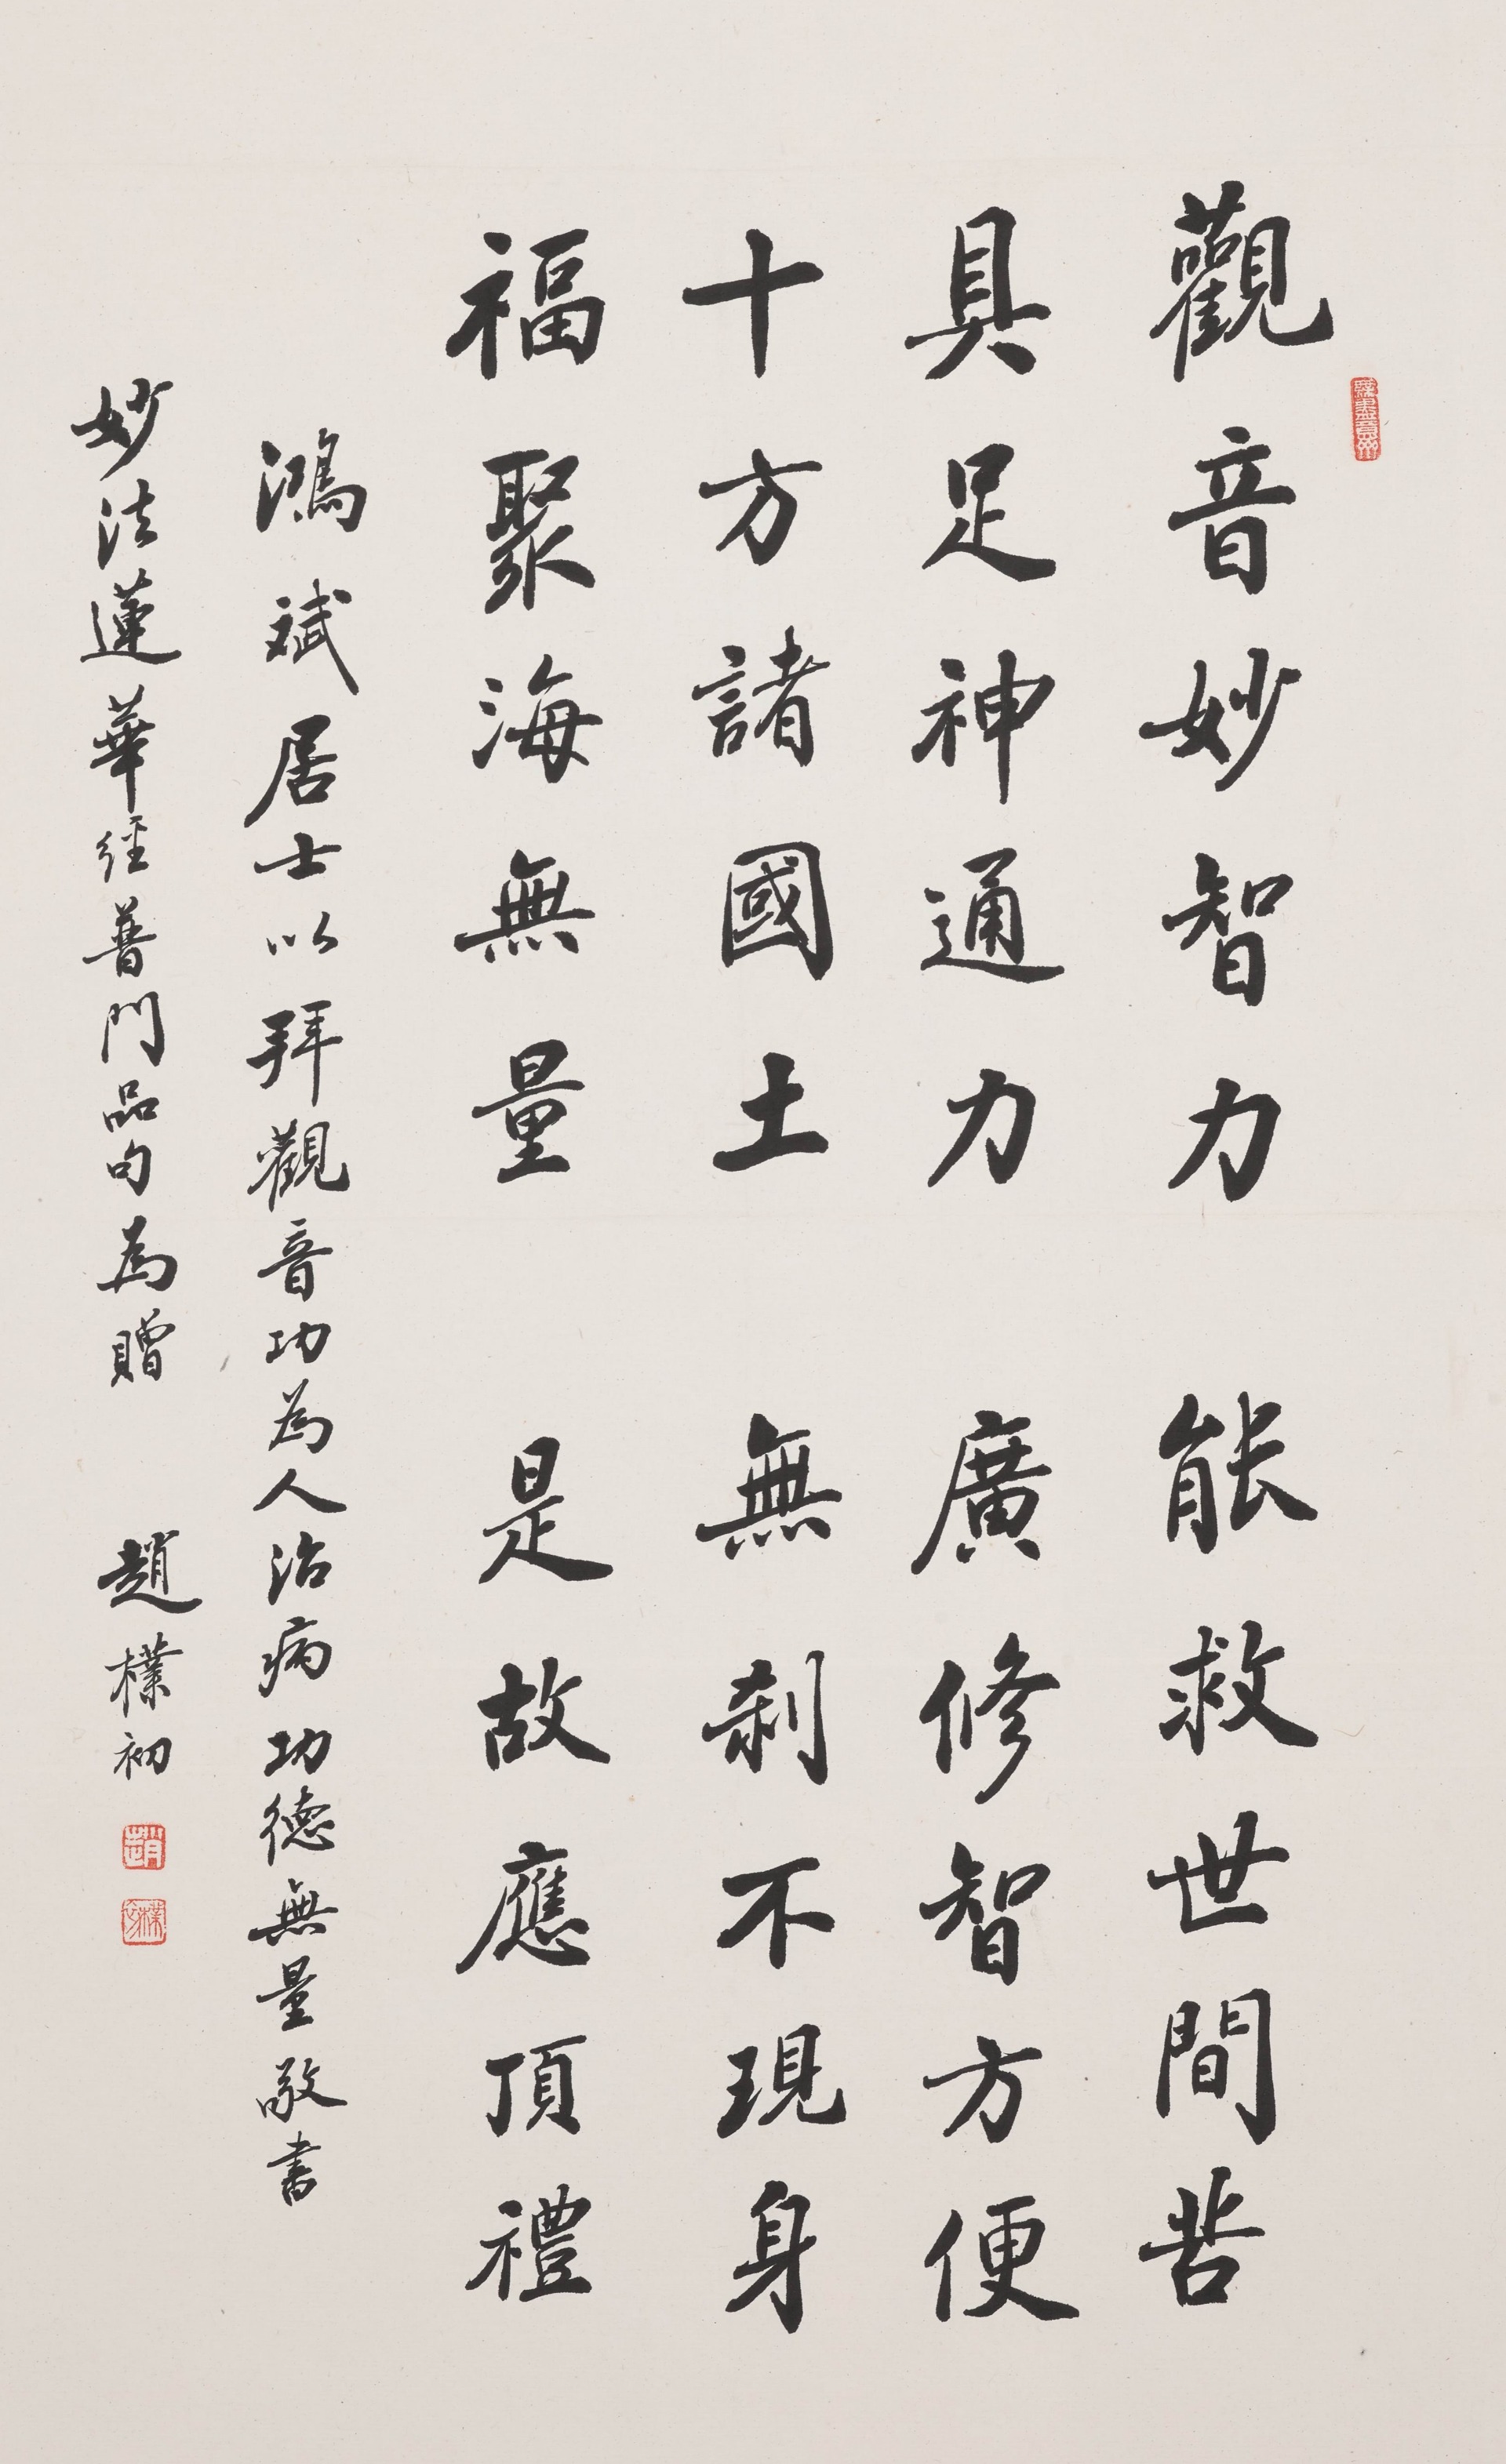 觀音妙智力 能救世間苦
具足神通力 廣修智方便
十方諸國土 無剎不現身
福聚海無量 是故應頂禮
鴻斌居士以拜觀音功為人治病功德無量敬書
妙法蓮華經普門品句為贈 趙樸初
趙
樸初